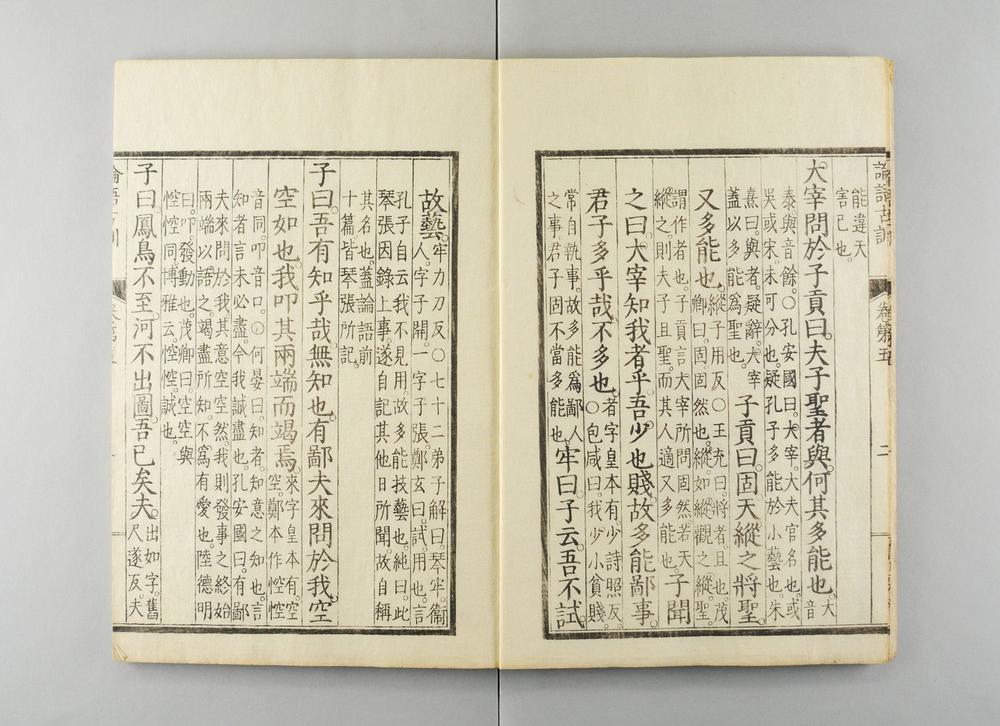 論語古訓
卷第五
二
能違天
害已也。
大宰問於子貢曰。夫子聖者與。何其多能也。大音
泰與音餘。○孔安國曰。大宰。大夫官名也。或
吳或宋。未可分也。疑孔子多能於小藝也。朱
熹曰。與者。疑辭。大宰
蓋以多能爲聖也。
子貢曰。固天縱之將聖。
又多能也。縱子用反○王充曰。將者。且也。茂
卿曰。固固然也。縱。如縱觀之縱。聖。
謂作者也。子貢言大宰所問固然若天
縱之。則夫子且聖。而其人適又多能也。
子聞
之曰。大宰知我者乎。吾少也賤。故多能鄙事。
君子多乎哉。不多也。者字皇本有。少詩照反。
○包咸曰。我少小貧賤。
常自執事。故多能爲鄙人
之事。君子固不當多能也。
牢曰。子云。吾不試。
故藝。牢力刀反○七十二弟子解曰。琴牢。衞
人。字子開。一字子張。鄭玄曰。試。用也。言
孔子自云我不見用。故多能技藝也。純曰。此
琴張因錄上事。遂自記其他日所聞。故自稱
其名也。蓋論語前
十篇皆琴張所記。
子曰。吾有知乎哉。無知也。有鄙夫來問於我。空
空如也。我叩其兩端而竭焉。來字皇本有。空
空。鄭本作悾悾
音同。叩音口。○何晏曰。知者。知意之知也。言
知者言未必盡。今我誠盡也。孔安國曰。有鄙
夫來問於我。其意空空然。我則發事之終始
兩端以語之。竭盡所知。不爲有愛也。陸德明
曰。叩。發動也。茂卿曰。空空與
悾悾同。博雅云。悾悾。誠也。
子曰。鳳鳥不至。河不出圖。吾已矣夫。出如字。舊
尺遂反。夫